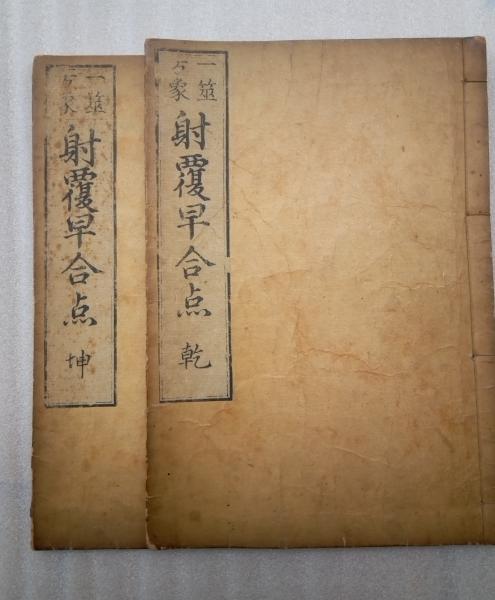 一筮
万象
射覆早合点
乾
一筮
万象
射覆早合点
坤